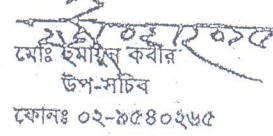 মোঃ হুমায়ুন কবীর
উপ-সচিব
ফোনঃ ০২-৯৫৪০২৬৫